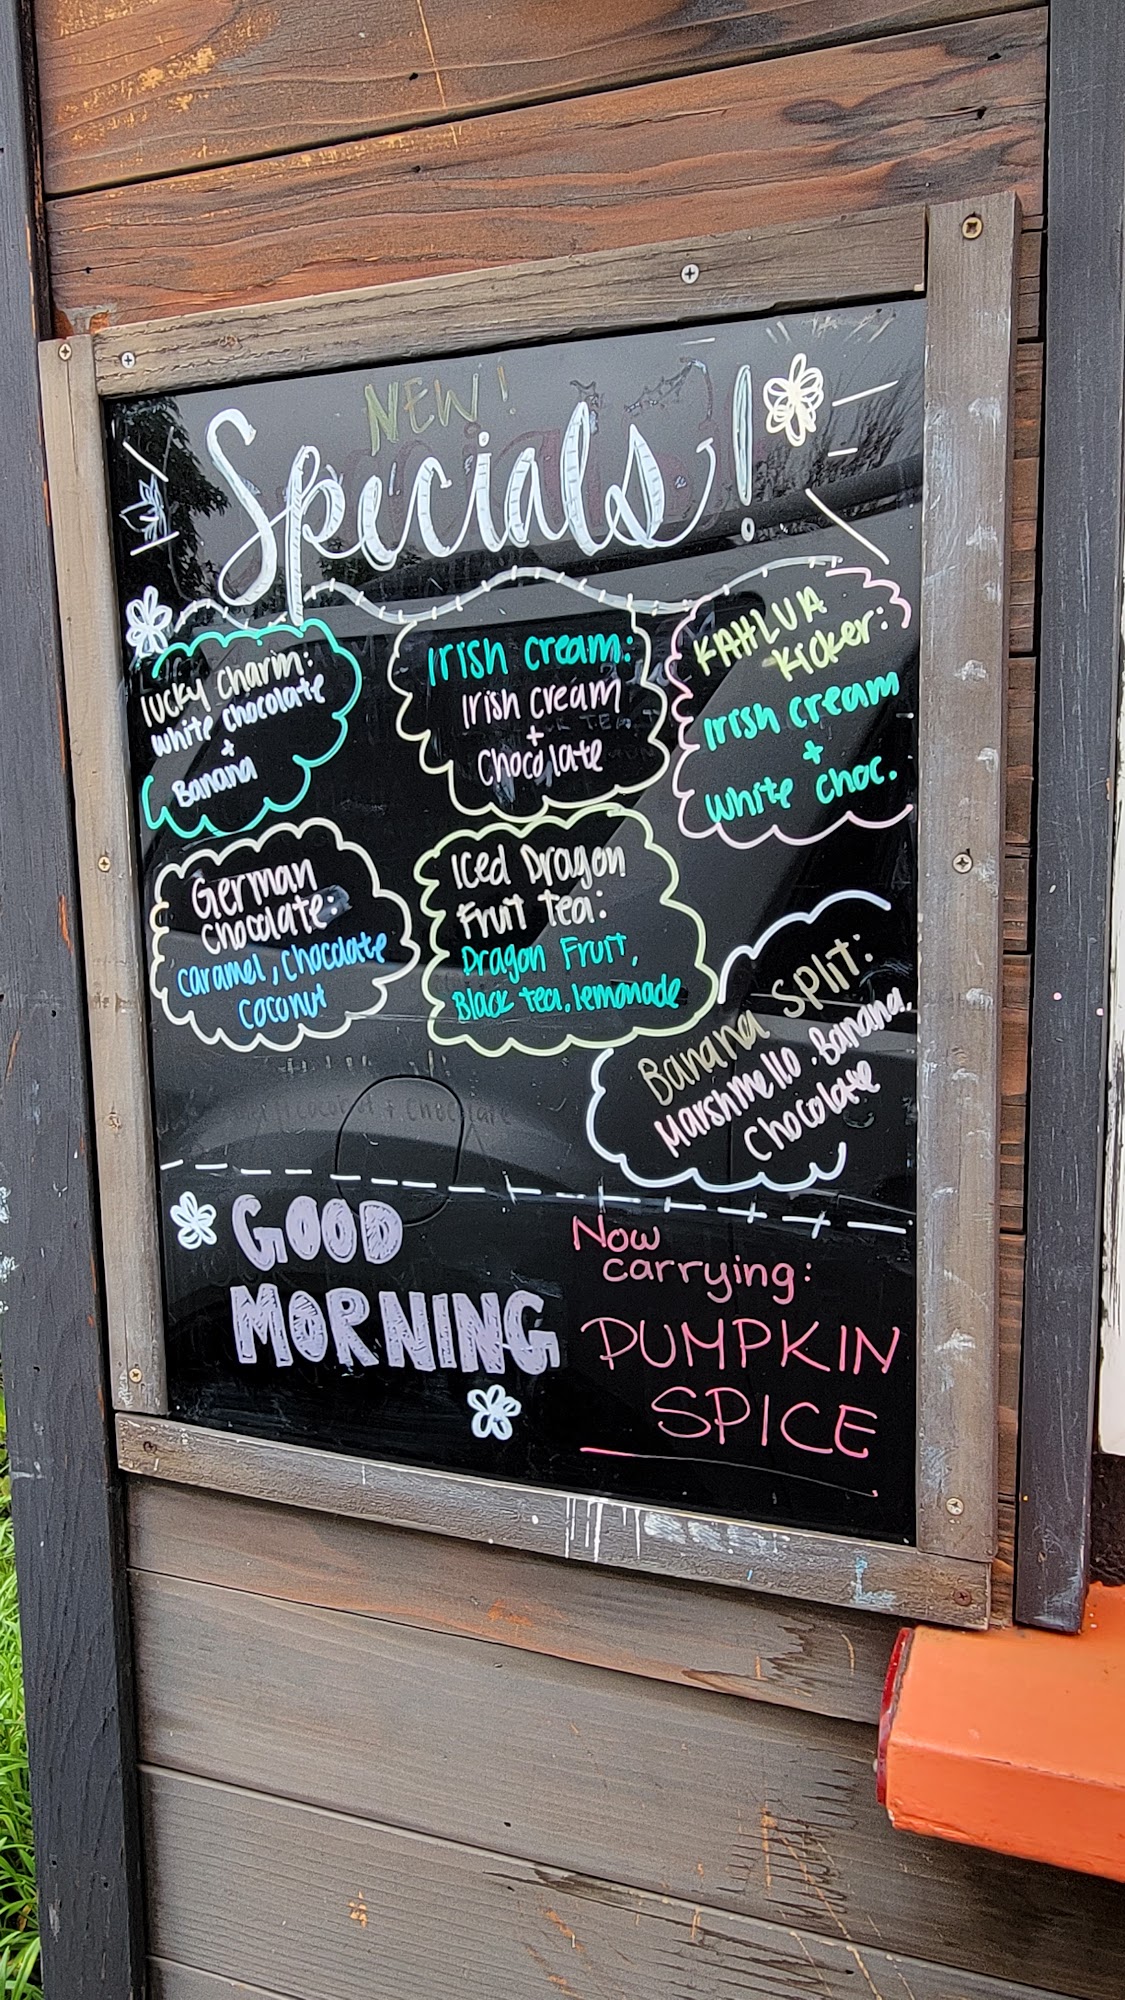 NEW!
Specials!
lucky charm:
white chocolate
+
Banana
Irish cream:
Irish cream
+
Chocolate
KAHLUA
Kicker:
Irish cream
+
White choc.
German
chocolate:
caramel, chocolate
coconut
Iced Dragon
Fruit Tea:
Dragon Fruit,
Black tea, lemonade
Banana Split:
Marshmello, Banana,
Chocolate
GOOD
MORNING
Now
carrying:
PUMPKIN
SPICE